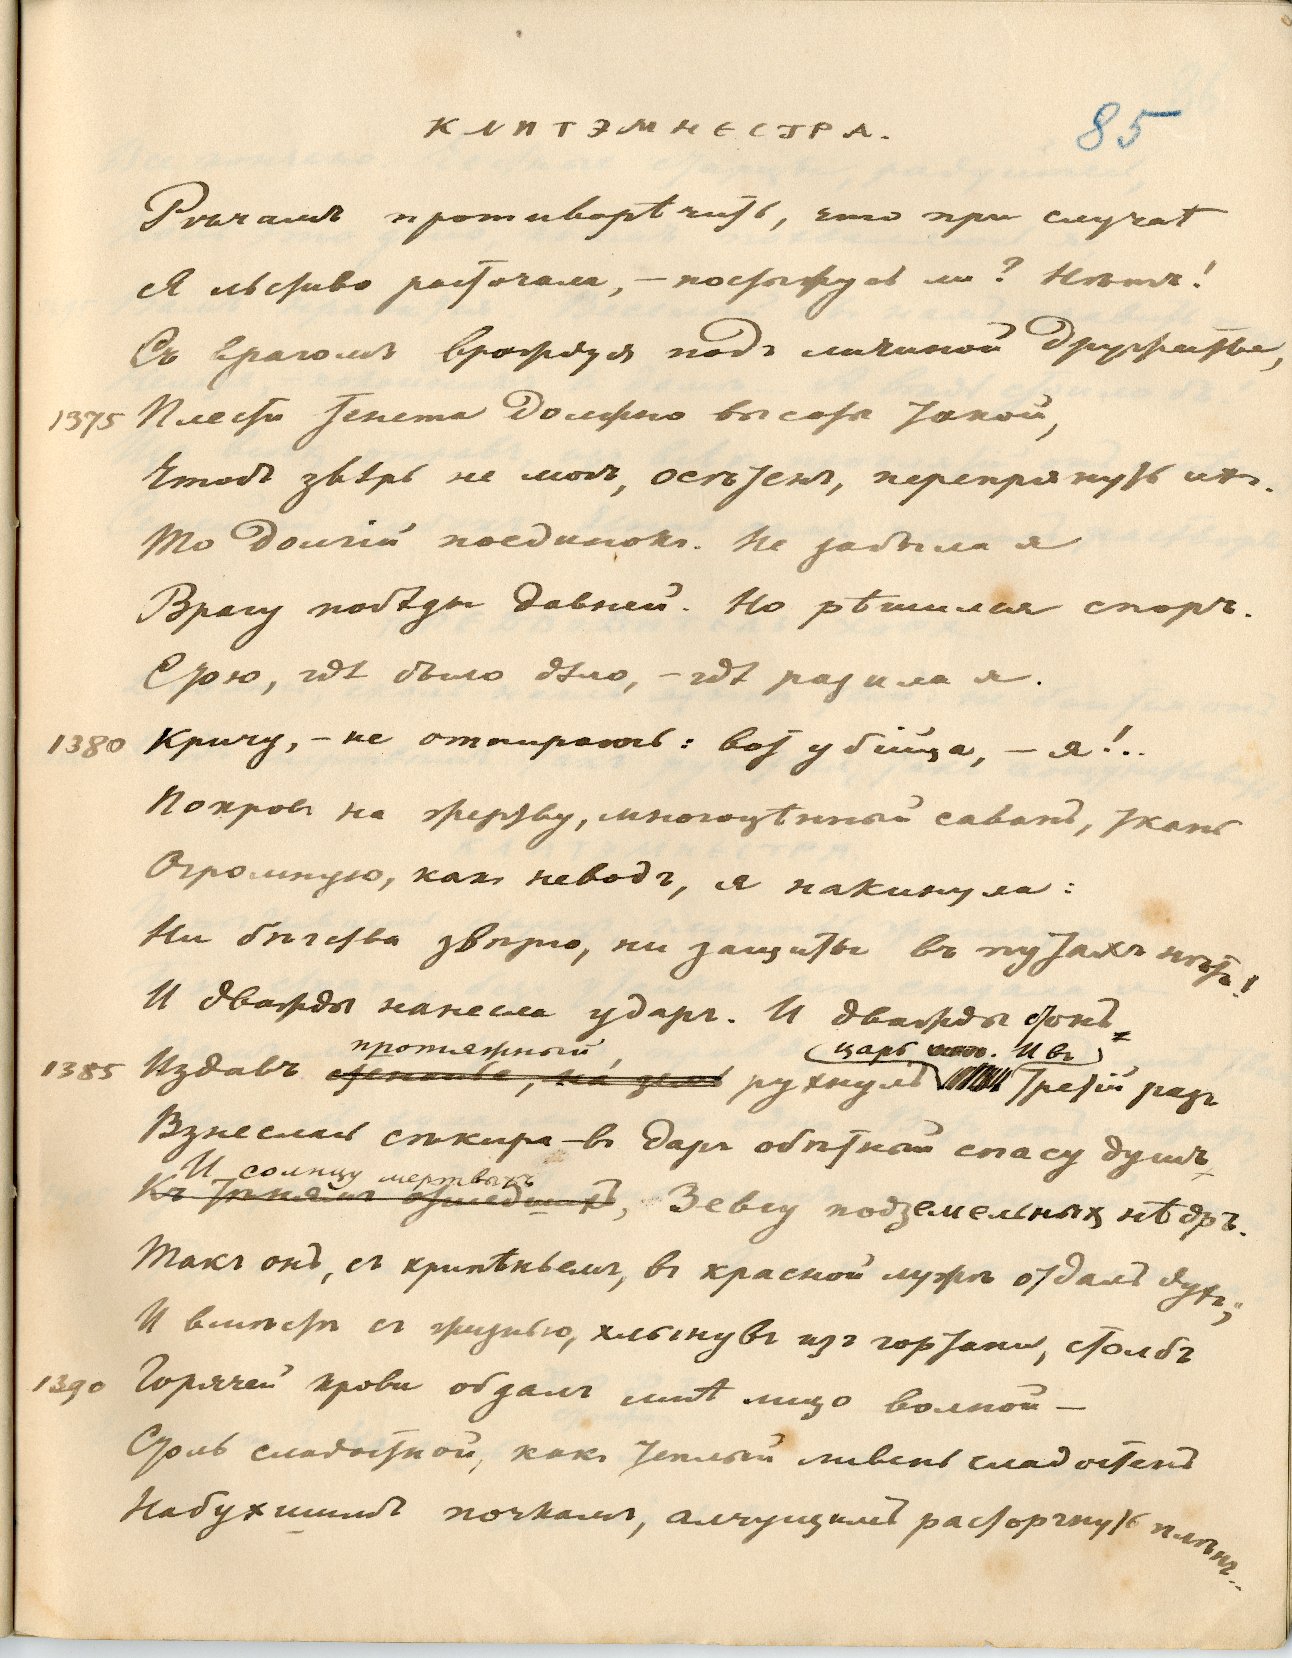 КЛИТЭМНЕСТРА.
85
Рѣчамъ противорѣчить, что при случаѣ
Я льстиво расточала, – постыжусь ли? Нѣтъ!
Съ врагомъ враждуя подъ личиной дружества,
1375 Плести тенета должно высоты такой,
Чтобъ звѣрь не могъ, осѣтенъ, перепрянуть ихъ.
То долгій поединокъ. Не забыла я
Врагу побѣды давней. Но рѣшился споръ.
Стою, гдѣ было дѣло, – гдѣ разила я.
1380 Кричу, – не отпираюсь: вотъ убійца, – я!..
Покровъ на жертву, многоцѣнный саванъ, ткань
Огромную, какъ неводъ, я накинула:
Ни бѣгства звѣрю, ни защиты въ путахъ нѣтъ!
И дважды нанесла ударъ. И дважды стонъ
протяжный, царь И въ
1385 Издавъ рухнулъ третій разъ
Взнеслась сѣкира – въ даръ обѣтный спасу душъ
И солнцу мертвыхъ
Къ тѣнямъ отшедшихъ, Зевсу подземельныхъ нѣдръ.
Такъ онъ, съ хрипѣньемъ, въ красной лужѣ отдалъ духъ;
И вмѣстѣ съ жизнью, хлынувъ изъ гортани, столбъ
1390 Горячей крови обдалъ мнѣ лицо волной –
Столь сладостной, какъ теплый ливень сладостенъ
Набухшимъ почкамъ, алчущимъ расторгнуть плѣнъ..